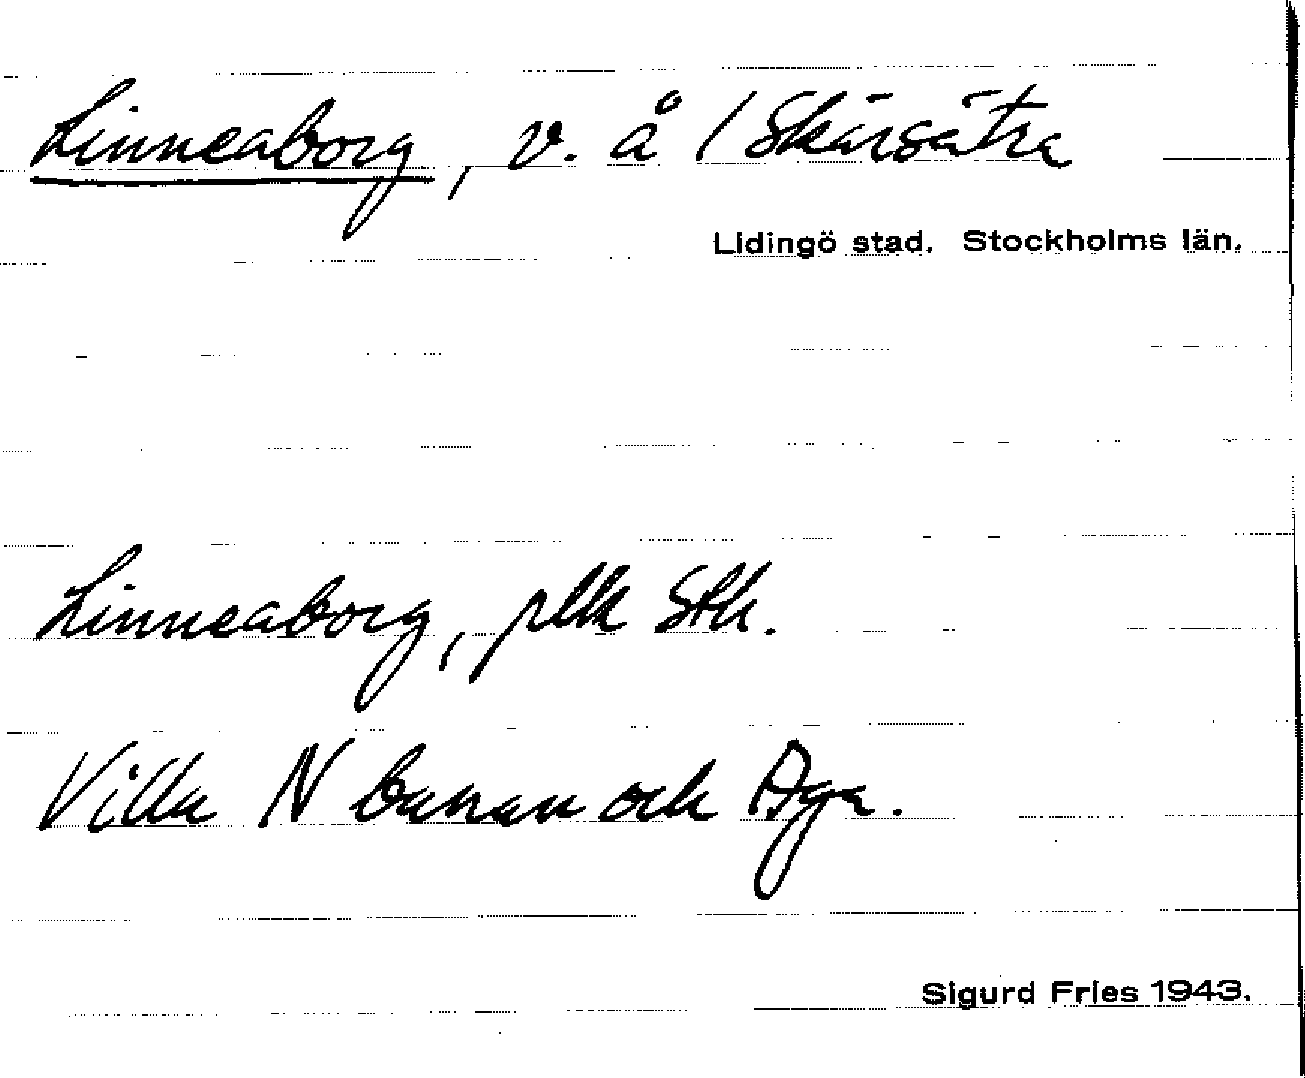 Linneaborg, v. å / Skärsätra
Lidingö stad. Stockholms län.
Linneaborg, plk Stk.
Villa N banan och Aga.
Sigurd Fries 1943.